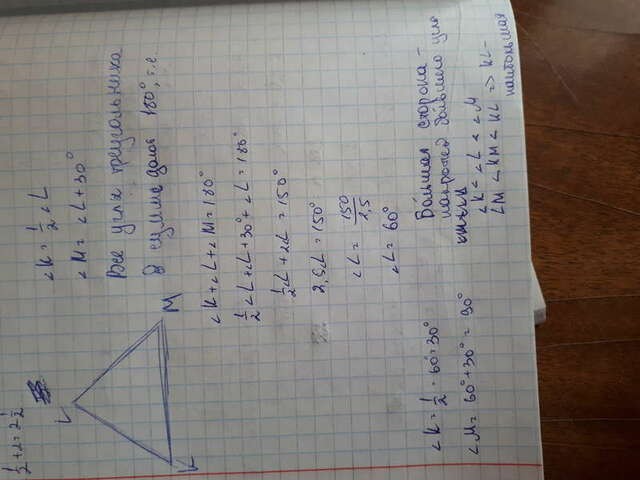 1/2 + 2 = 2 1/2
L
K
M
∠K = 1/2 ∠L
∠M = ∠L + 30°
Все углы треугольника
в сумме дают 180°, т.е.
∠K + ∠L + ∠M = 180°
1/2 ∠L + ∠L + 30° + ∠L = 180°
1/2 ∠L + 2∠L = 150°
2,5∠L = 150°
∠L = 150/2,5
∠L = 60°
∠K = 1/2 · 60 = 30°
∠M = 60° + 30° = 90°
Большая сторона –
напротив большего угла
∠K < ∠L < ∠M
LM < KM < KL => KL –
наибольшая